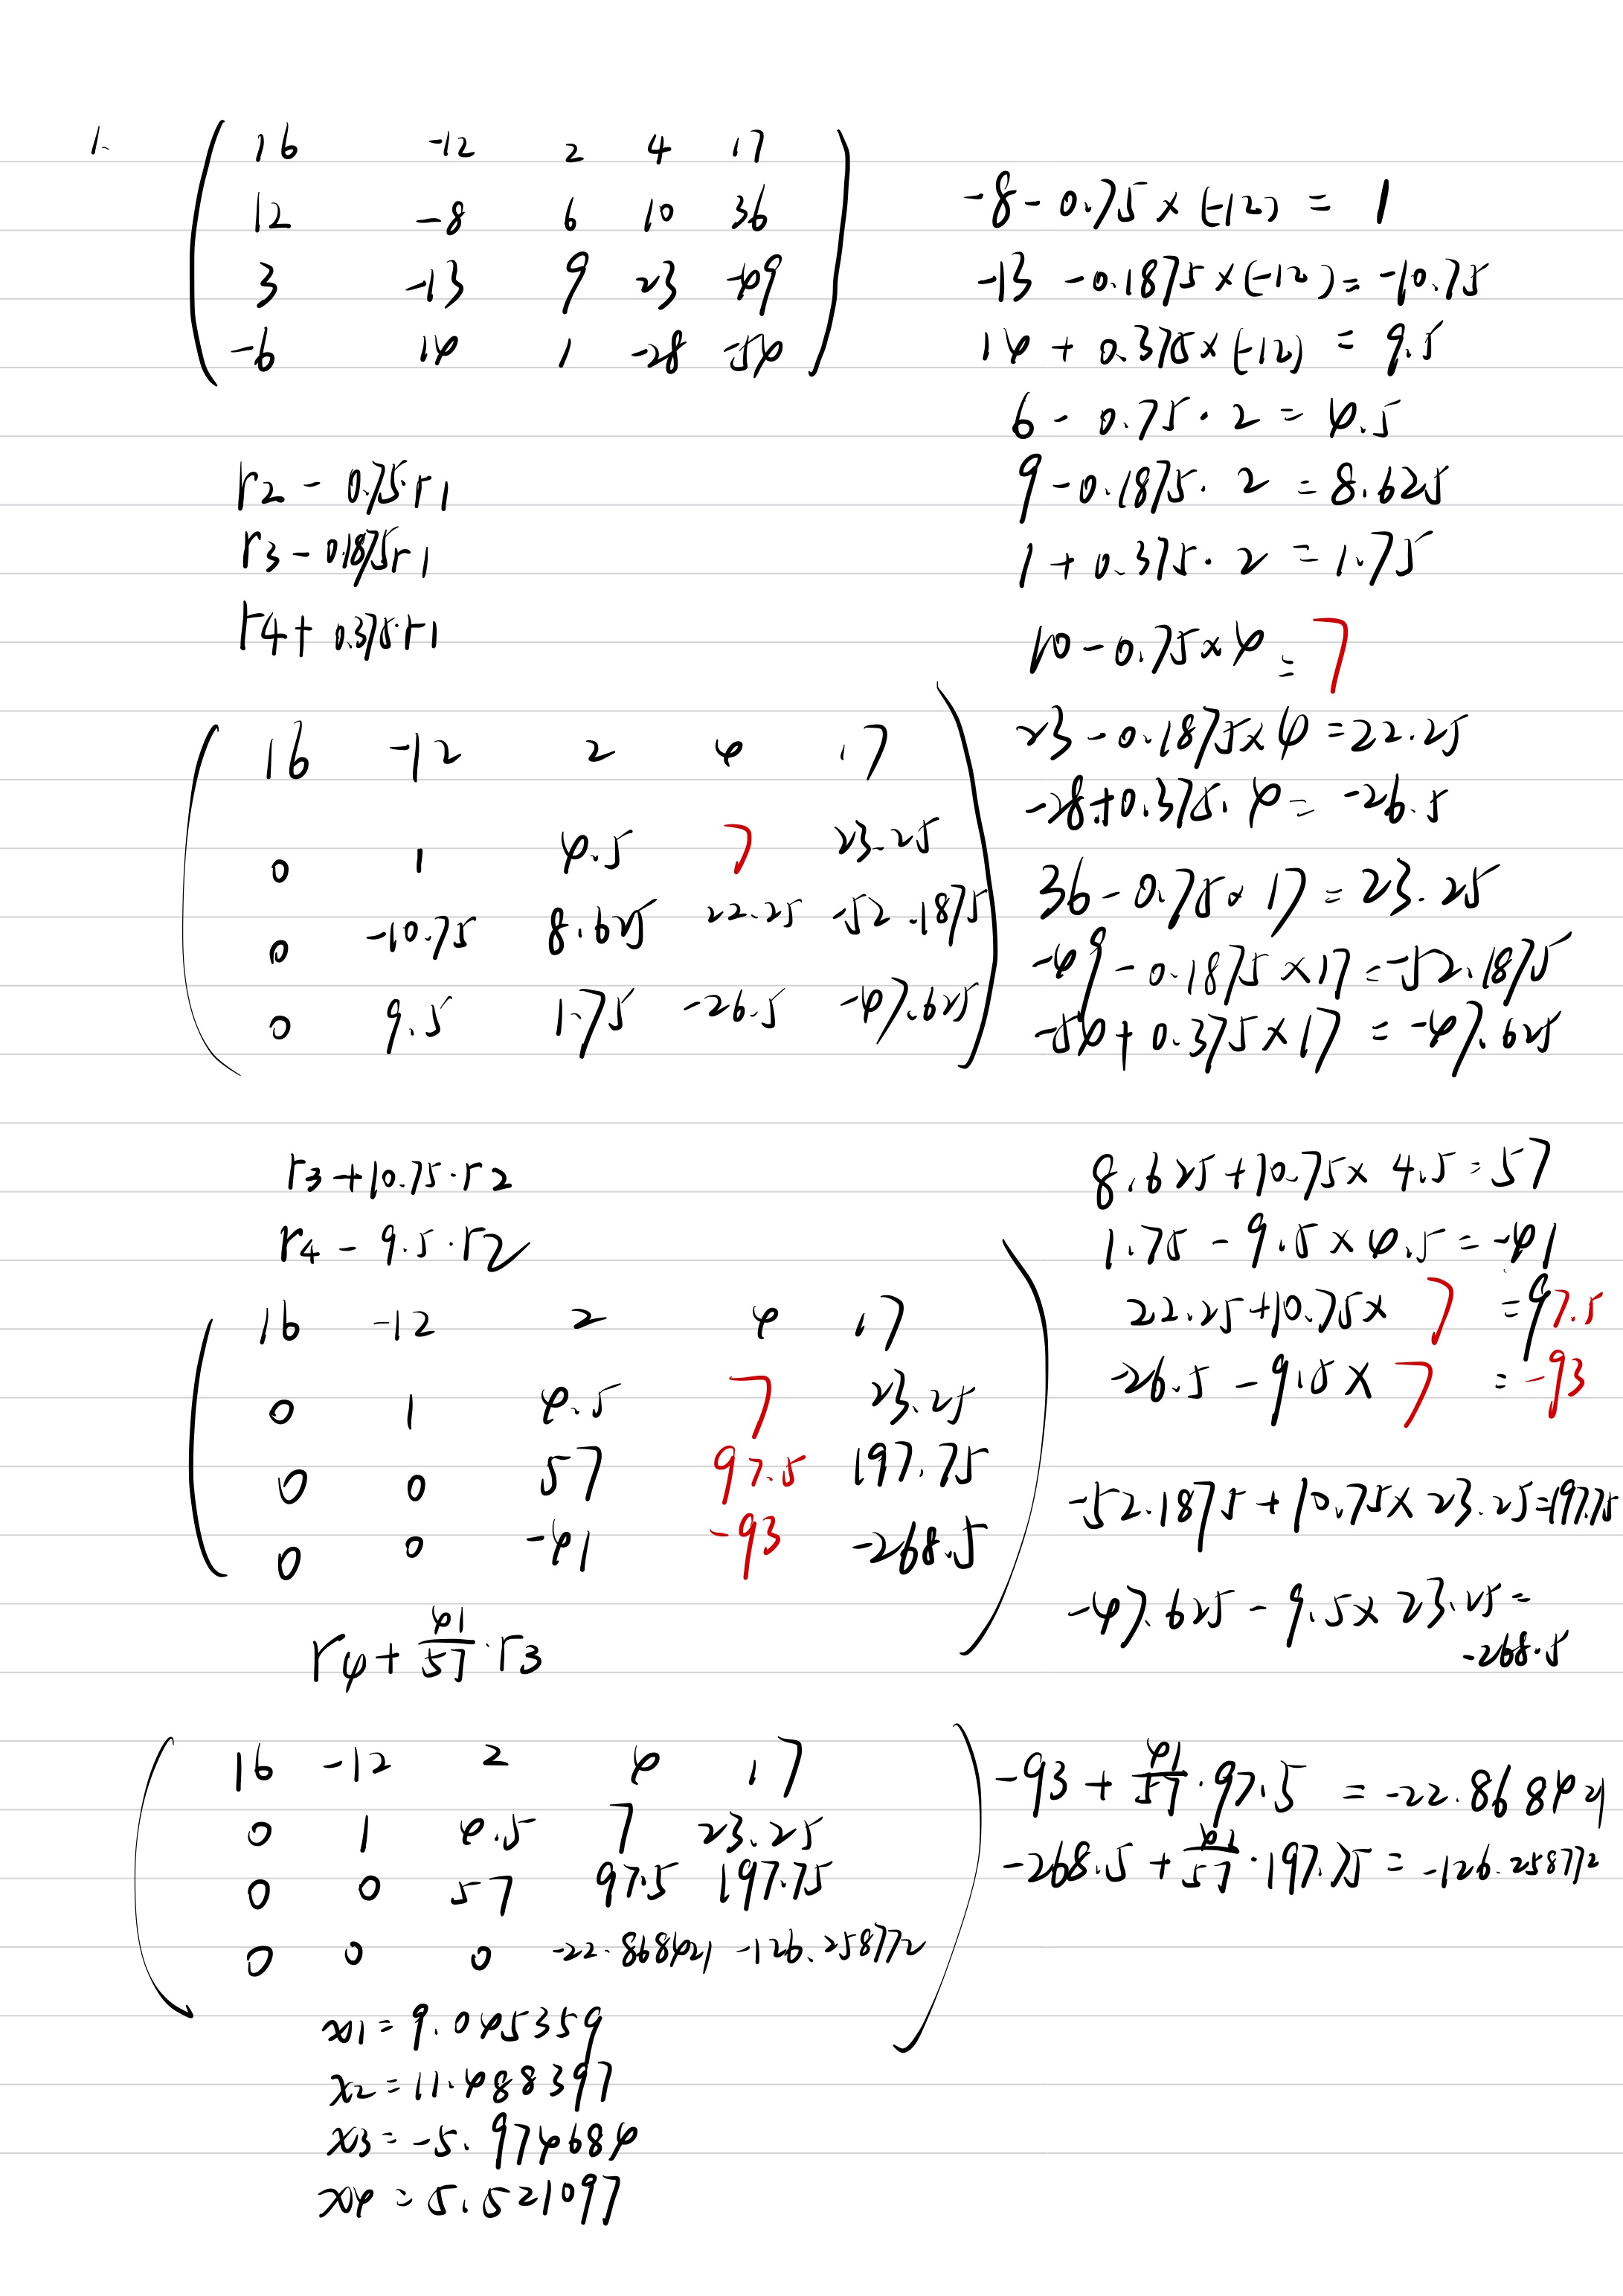 1.
16 -12 2 4 17
12 -8 6 10 36
3 -13 9 23 -49
-6 14 1 -28 -54
r2 - 0.75·r1
r3 - 0.1875r1
r4 + 0.375·r1
-8 - 0.75 × (-12) = 1
-13 - 0.1875 × (-12) = -10.75
14 + 0.375 × (-12) = 9.5
6 - 0.75 · 2 = 4.5
9 - 0.1875 · 2 = 8.625
1 + 0.375 · 2 = 1.75
10 - 0.75 × 4 = 7
23 - 0.1875 × 4 = 22.25
-28 + 0.375 · 4 = -26.5
36 - 0.75 × 17 = 23.25
-49 - 0.1875 × 17 = -52.1875
-54 + 0.375 × 17 = -47.625
16 -12 2 4 17
0 1 4.5 7 23.25
0 -10.75 8.625 22.25 -52.1875
0 9.5 1.75 -26.5 -47.625
r3 + 10.75 · r2
r4 - 9.5 · r2
8.625 + 10.75 × 4.5 = 57
1.75 - 9.5 × 4.5 = -41
22.25 + 10.75 × 7 = 97.5
-26.5 - 9.5 × 7 = -93
-52.1875 + 10.75 × 23.25 = 197.75
-47.625 - 9.5 × 23.25 =
-268.5
16 -12 2 4 17
0 1 4.5 7 23.25
0 0 57 97.5 197.75
0 0 -41 -93 -268.5
r4 + 41/57 · r3
-93 + 41/57 · 97.5 = -22.868421
-268.5 + 41/57 · 197.75 = -126.258772
16 -12 2 4 17
0 1 4.5 7 23.25
0 0 57 97.5 197.75
0 0 0 -22.868421 -126.258772
x1 = 9.045359
x2 = 11.488397
x3 = -5.974684
x4 = 5.521097